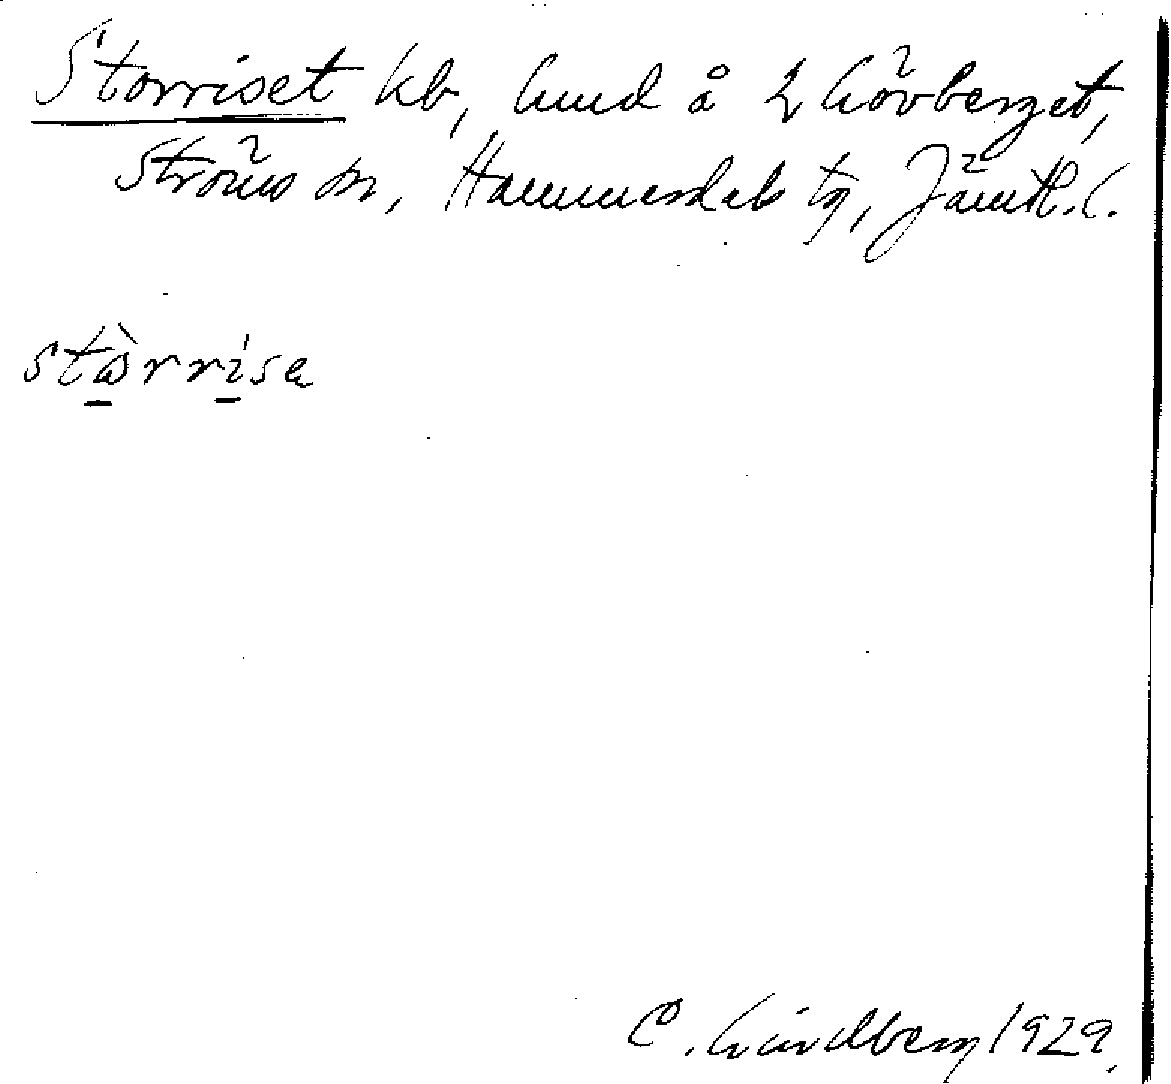 Storriset kb, lund å Lövberget,
Ströms sn, Hammerdals tg, Jämtl. l.
stòrrisa
C. Lindberg 1929.